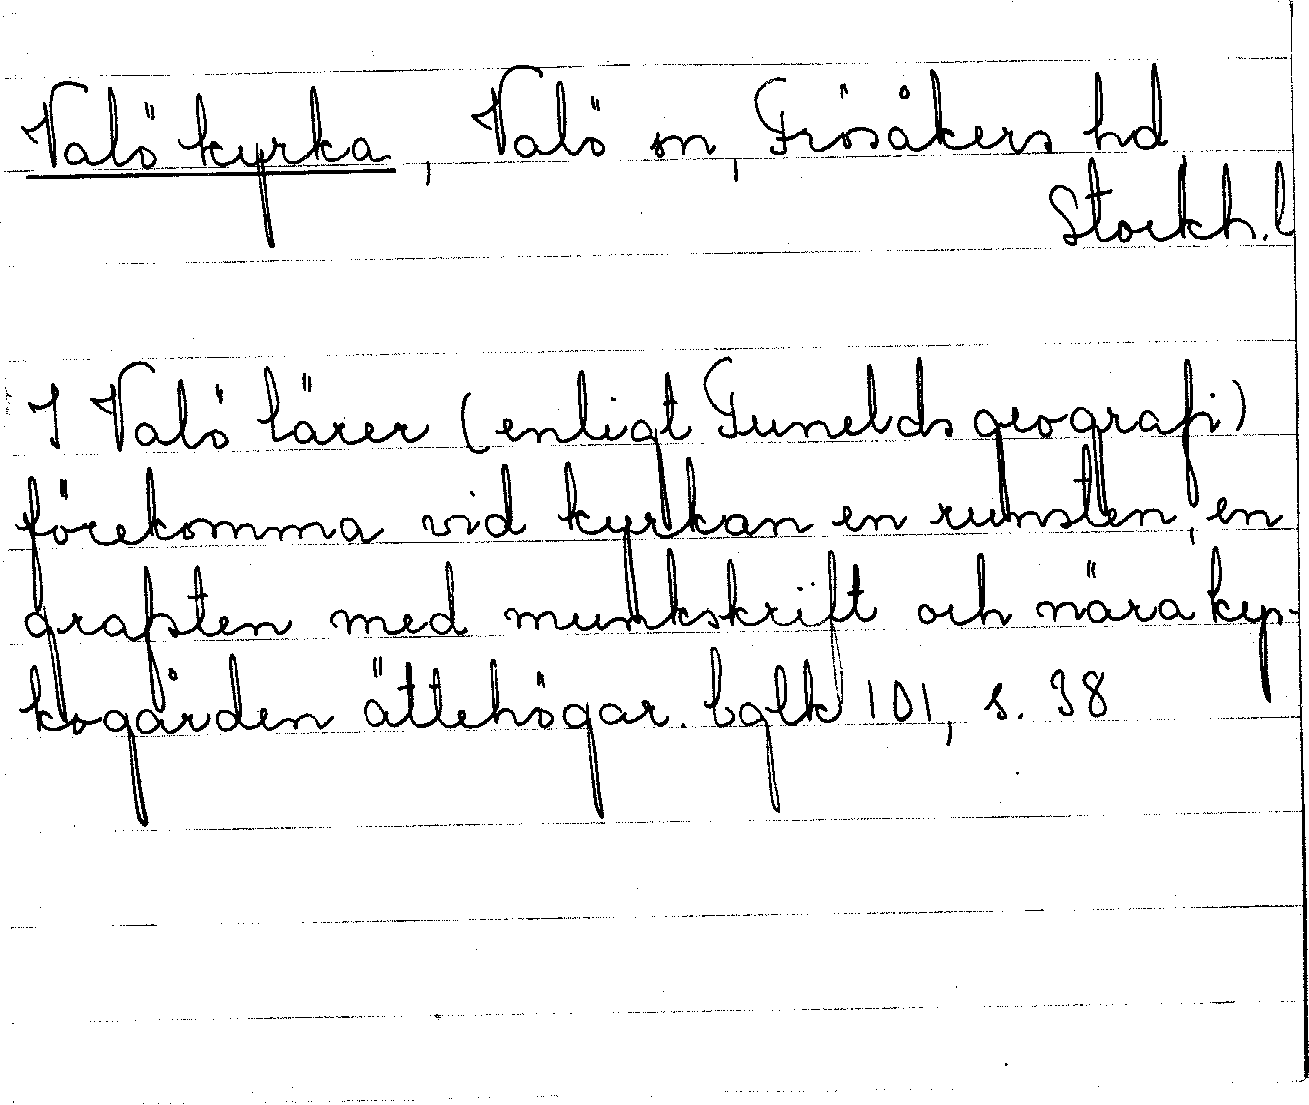 Valö kyrka, Valö sn, Frösåkers hd
Stockh. l
I Valö lärer (enligt Tunelds geografi)
förekomma vid kyrkan en runsten, en
grafsten med munkskrift och nära kyr-
kogården ättehögar. 101, s. 38